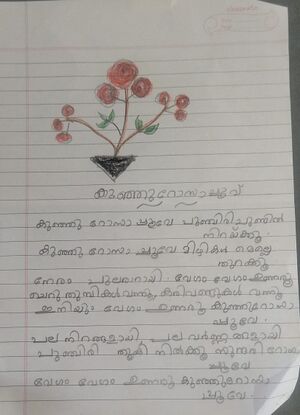 കുഞ്ഞുറോസാപ്പൂവ്
കുഞ്ഞു റോസാ പ്പൂവേ പുഞ്ചിരിപ്പൂണിൻ
നിറയ്ക്കൂ.
കുഞ്ഞു റോസാ പ്പൂവേ മിഴികൾ മെല്ലെ
തുറക്കൂ
നേരം പുലരാറായി വേഗം വേഗം ഉണരൂ
ചെറു തുമ്പികൾ വന്നൂ, കരിവണ്ടുകൾ വന്നൂ
ഇനിയും വേഗം ഉണരൂ കുഞ്ഞുറോസാ
പ്പൂവേ
പല നിറങ്ങളായി, പല വർണ്ണങ്ങളായി
പുഞ്ചിരി തൂകി നിൽക്കൂ സുന്ദരി റോസ
പ്പൂവേ
വേഗം വേഗം ഉണരൂ കുഞ്ഞുറോസാ
പ്പൂവേ.